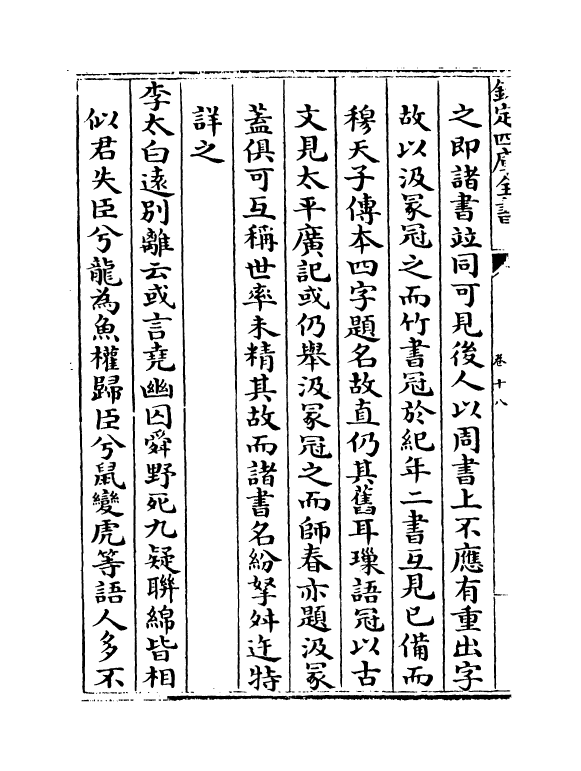 欽定四庫全書
卷十八
之即諸書竝同可見後人以周書上不應有重出字
故以汲冢冠之而竹書冠於紀年二書互見已備而
穆天子傳本四字題名故直仍其舊耳璅語冠以古
文見太平廣記或仍舉汲冢冠之而師春亦題汲冢
蓋俱可互稱世率未精其故而諸書名紛拏舛迕特
詳之
李太白遠別離云或言堯幽囚舜野死九疑聯綿皆相
似君失臣兮龍為魚權歸臣兮鼠變虎等語人多不